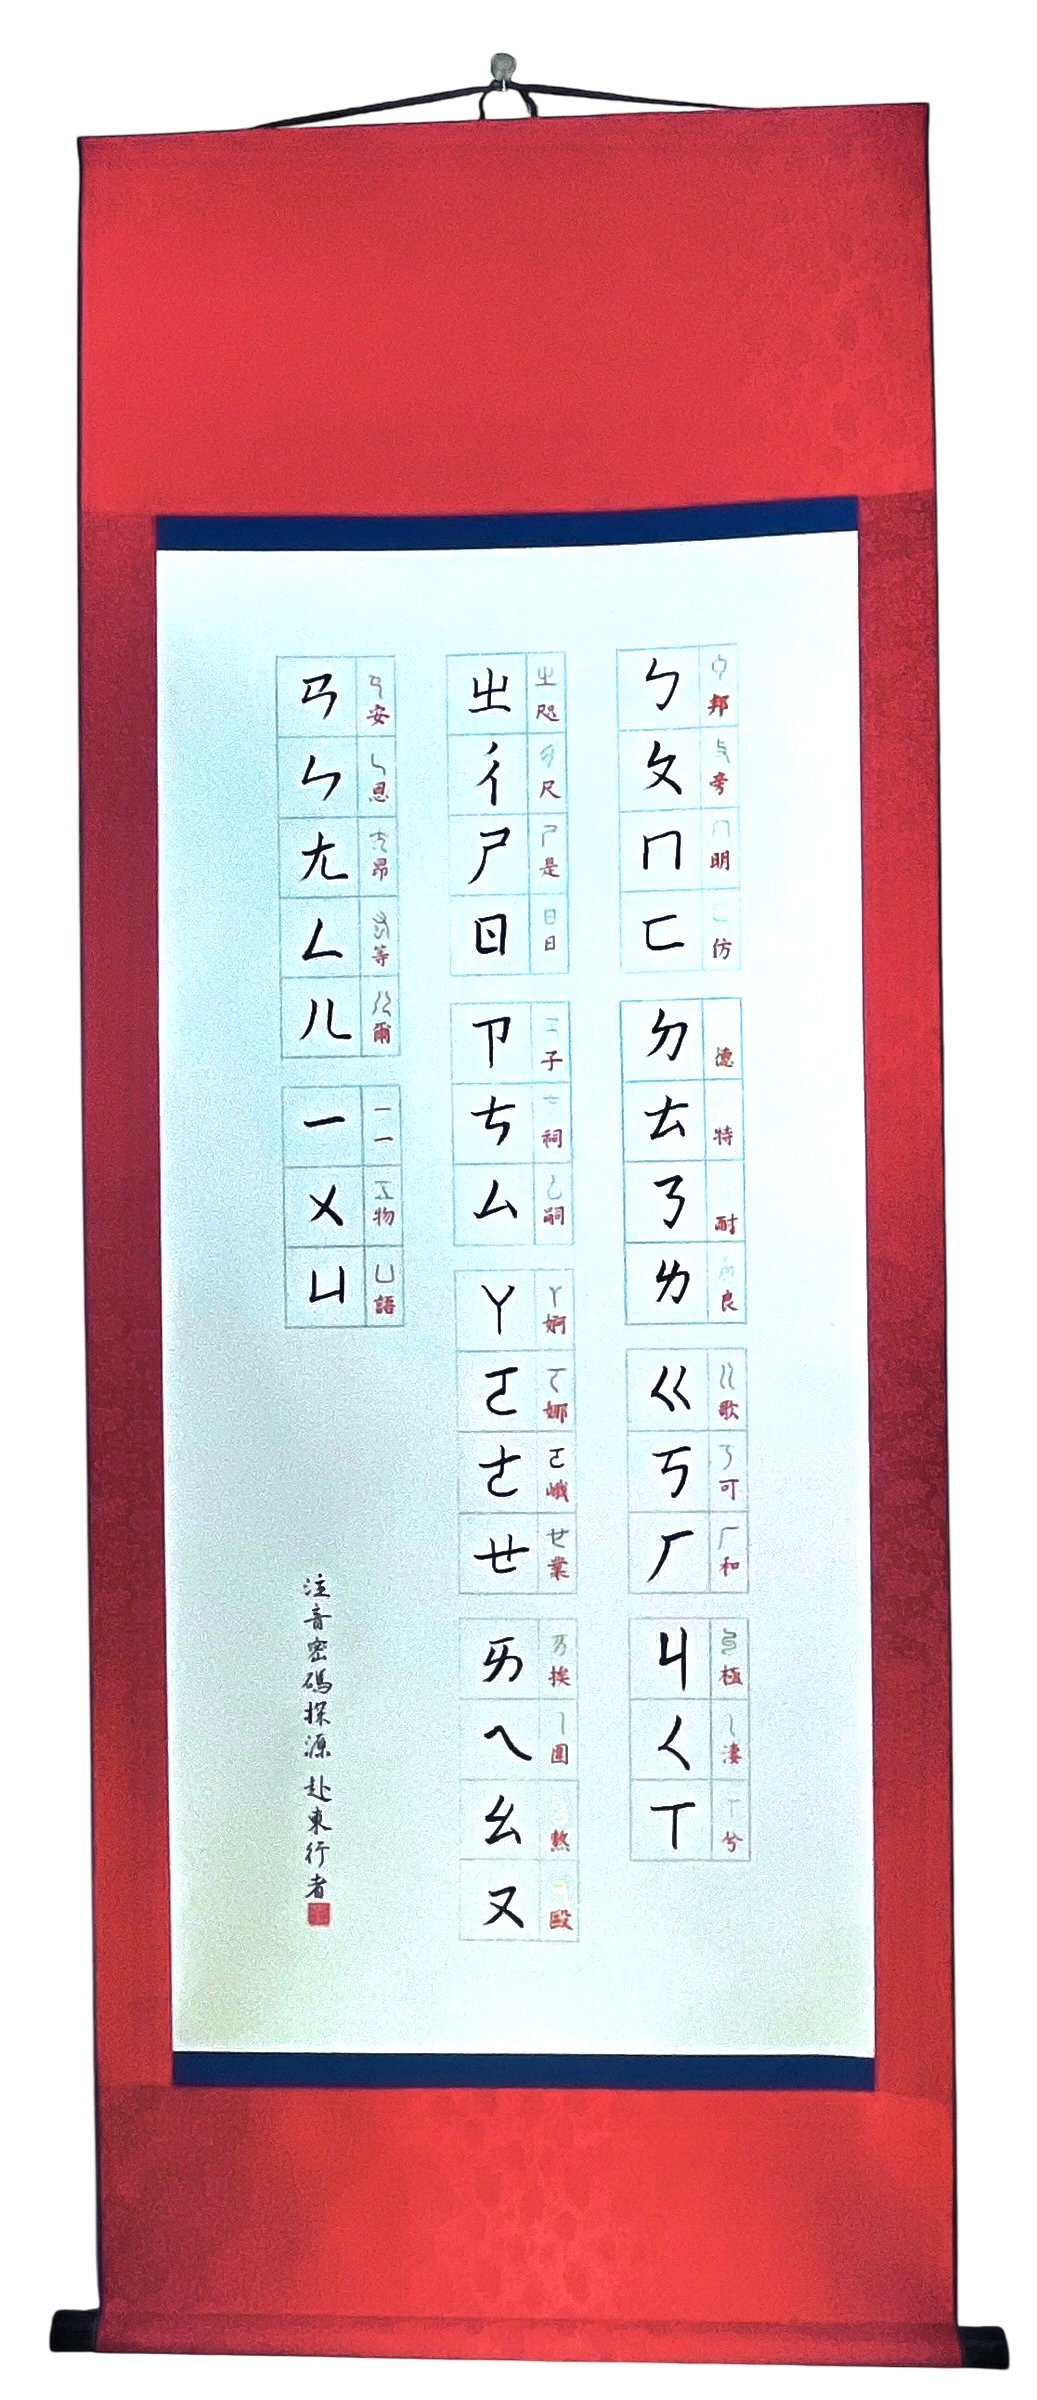 ㄅ 邦
ㄆ 旁
ㄇ 明
ㄈ 仿
ㄉ 德
ㄊ 特
ㄋ 耐
ㄌ 良
ㄍ 歌
ㄎ 可
ㄏ 和
ㄐ 極
ㄑ 淒
ㄒ 兮
ㄓ ㄓ 咫
ㄔ 尺
ㄕ ㄕ 是
ㄖ 日 日
ㄗ 子
ㄘ 祠
ㄙ 嗣
ㄚ ㄚ 婀
ㄛ 娜
ㄜ ㄛ 峨
ㄝ ㄝ 業
ㄞ ㄞ 挨
ㄟ
ㄠ 熬
ㄡ 毆
ㄢ 安
ㄣ ㄣ 恩
ㄤ 昂
ㄥ 等
ㄦ 爾
一 一 一
ㄨ 物
ㄩ ㄩ 語
注音密碼探源 赴東行者